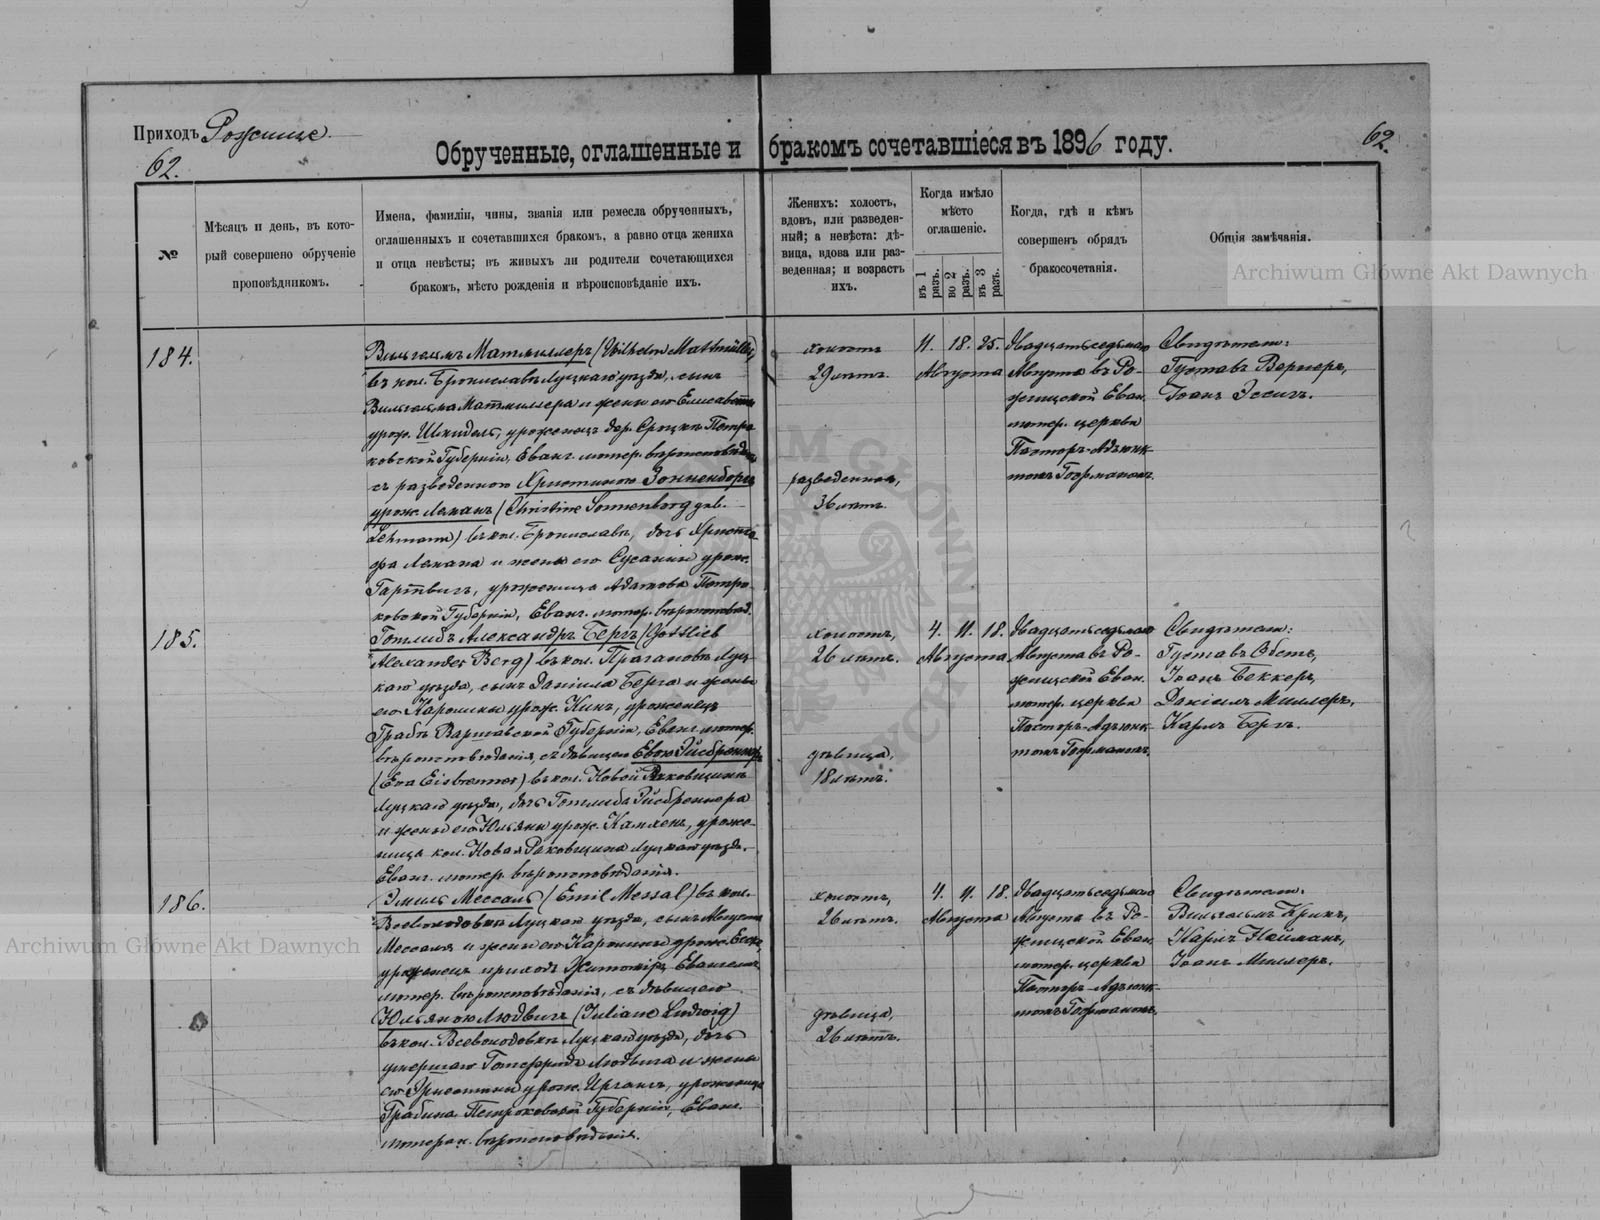 Приходъ Рожище
62.
62.
Обрученные, оглашенные и бракомъ сочетавшіеся въ 1896 году.
№
Мѣсяцъ и день, въ кото-
рый совершено обрученіе
проповѣдникомъ.
Имена, фамиліи, чины, званія или ремесла обрученныхъ,
оглашенныхъ и сочетавшихся бракомъ, а равно отца жениха
и отца невѣсты; въ живыхъ ли родители сочетающихся
бракомъ, мѣсто рожденія и вѣроисповѣданіе ихъ.
Женихъ: холостъ,
вдовъ, или разведен-
ный; а невѣста: дѣ-
вица, вдова или раз-
веденная; и возрастъ
ихъ.
Когда имѣло
мѣсто
оглашеніе.
въ 1 разъ.
во 2 разъ.
въ 3 разъ.
Когда, гдѣ и кѣмъ
совершенъ обрядъ
бракосочетанія.
Общія замѣчанія.
184.
Вильгельмъ Матмиллеръ (Wilhelm Mattmüller)
въ кол. Брониславъ Луцкаго уѣзда, сынъ
Вильгельма Матмиллера и жены его Елисаветы
урож. Шнидель, уроженецъ дер. Петро-
ковской Губерніи, Еванг. лютер. вѣроисповѣд.
съ разведенною Христиною Зонненбергъ
урож. Леманъ (Christine Sonnenberg geb.
Lehmann) въ кол. Брониславъ, дочь Христо-
фа Лемана и жены его Сусанны урож.
Гартвигъ, уроженица Адамова Петро-
ковской Губерніи, Еванг. лютер. вѣроисповѣд.
холостъ
29 лѣтъ.
разведенная,
36 лѣтъ.
11. 18. 25.
Августа
Двадцать седьмаго
Августа въ Ро-
жищской Еван.
лютер. церкви
Пасторъ-Адъюнк-
томъ Гофманомъ.
Свидѣтели:
Густавъ Вернеръ,
Іоанъ Эссигъ.
185.
Готлибъ Александръ Бергъ (Gottlieb
Alexander Berg) въ кол. Луц-
каго уѣзда, сынъ Даніила Берга и жены
его Каролины урож. Кинъ, уроженецъ
Варшавской Губерніи, Еванг. лютер.
вѣроисповѣданія, съ дѣвицею Евою Эйсбреннеръ
(Eva Eisbrenner) въ кол. Новой Раковщинѣ
Луцкаго уѣзда, дочь Готлиба Эйсбреннера
и жены его Юльяны урож. Камхенъ, уроже-
ница кол. Новая Раковщина Луцкаго уѣзда.
Еванг. лютер. вѣроисповѣданія.
холостъ,
26 лѣтъ.
дѣвица,
18 лѣтъ.
4. 11. 18.
Августа
Двадцать седьмаго
Августа въ Ро-
жищской Еван.
лютер. церкви
Пасторъ-Адъюнк-
томъ Гофманомъ.
Свидѣтели:
Густавъ Обстъ,
Іоанъ Беккеръ,
Даніелъ Миллеръ,
Карлъ Бергъ.
186.
Эмиль Мессаль (Emil Messal) въ кол.
Всеволодовка Луцкаго уѣзда, сынъ Августа
Мессаля и жены его Каролины урож.
уроженецъ приходъ Житоміръ Евангел.
лютер. вѣроисповѣданія, съ дѣвицею
Юльяною Людвигъ (Juliane Ludwig)
въ кол. Всеволодовкѣ Луцкаго уѣзда, дочь
умершаго Готфрида Людвига и жены
его Христины урож. Ирганъ, уроженица
Грабина Петроковской Губерніи, Еванг.
лютеран. вѣроисповѣданія.
холостъ,
26 лѣтъ.
дѣвица,
26 лѣтъ.
4. 11. 18.
Августа
Двадцать седьмаго
Августа въ Ро-
жищской Еван.
лютер. церкви
Пасторъ-Адъюнк-
томъ Гофманомъ.
Свидѣтели:
Вильгельмъ Крикъ,
Карлъ Найманъ,
Іоанъ Миллеръ.
Archiwum Główne Akt Dawnych
Archiwum Główne Akt Dawnych